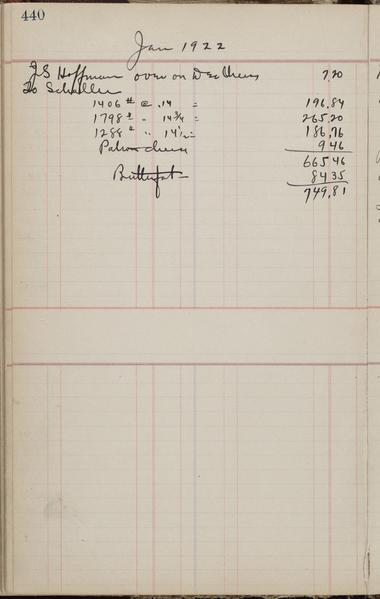 440
Jan 1922
J S Hoffman over on Dec Chees 7.20
To Schaller
1406 # @ .14 = 196.84
1798 # " 14 3/4 = 265.20
1288 # " 14 1/2 = 186.76
Patron cheese 9 46
665 46
Butterfat 84 35
749.81